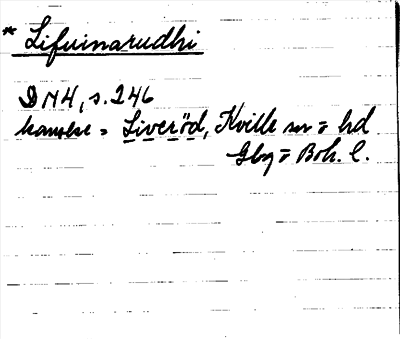 * Lifuinarudhi
DN4, s. 246
kanske = Liveröd, Kville sn = hd
Gbg = Boh. l.